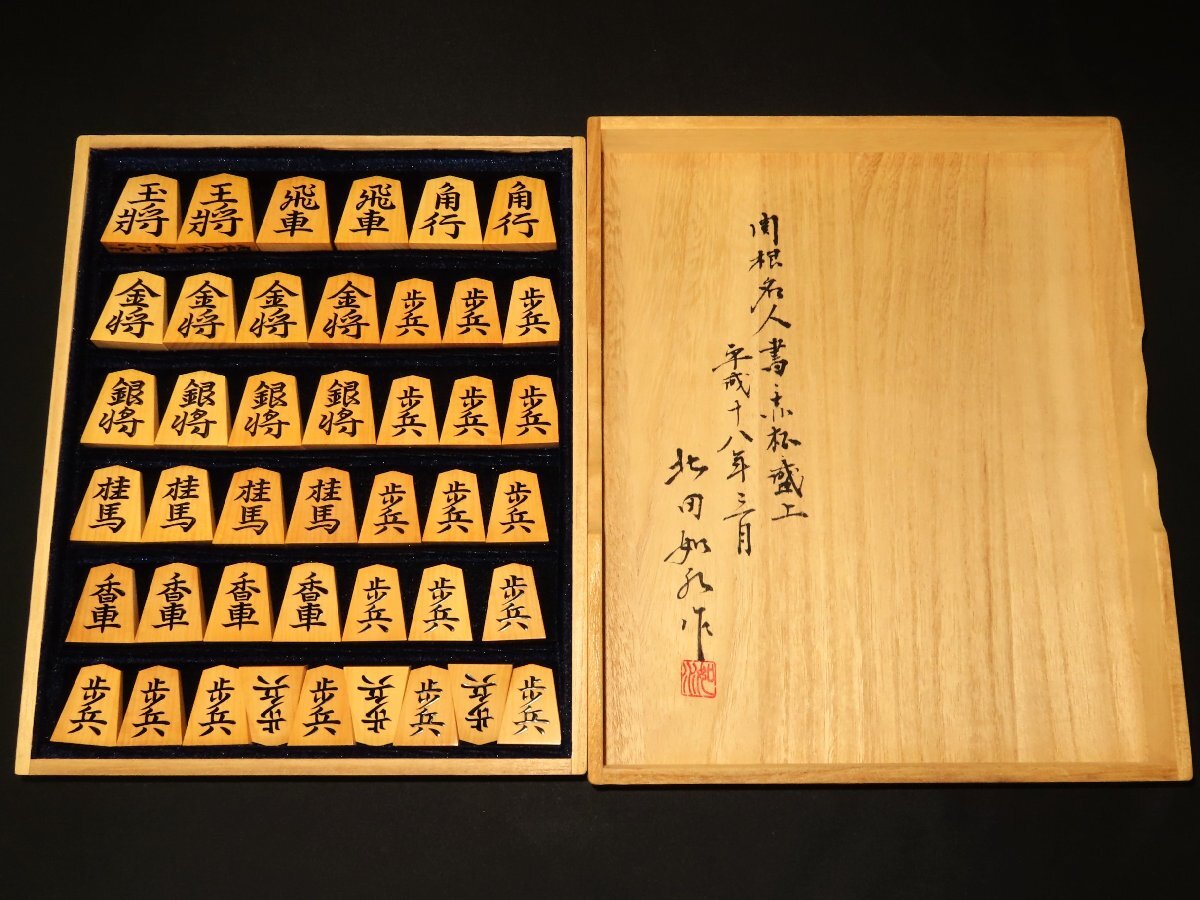 玉將 王將 飛車 飛車 角行 角行
金将 金将 金将 金将 歩兵 歩兵 歩兵
銀将 銀将 銀将 銀将 歩兵 歩兵 歩兵
桂馬 桂馬 桂馬 桂馬 歩兵 歩兵 歩兵
香車 香車 香車 香車 歩兵 歩兵 歩兵
歩兵 歩兵 歩兵 歩兵 歩兵 歩兵 歩兵 歩兵 歩兵
関根名人書・赤柾盛上
平成十八年三月
北田如水作
如水